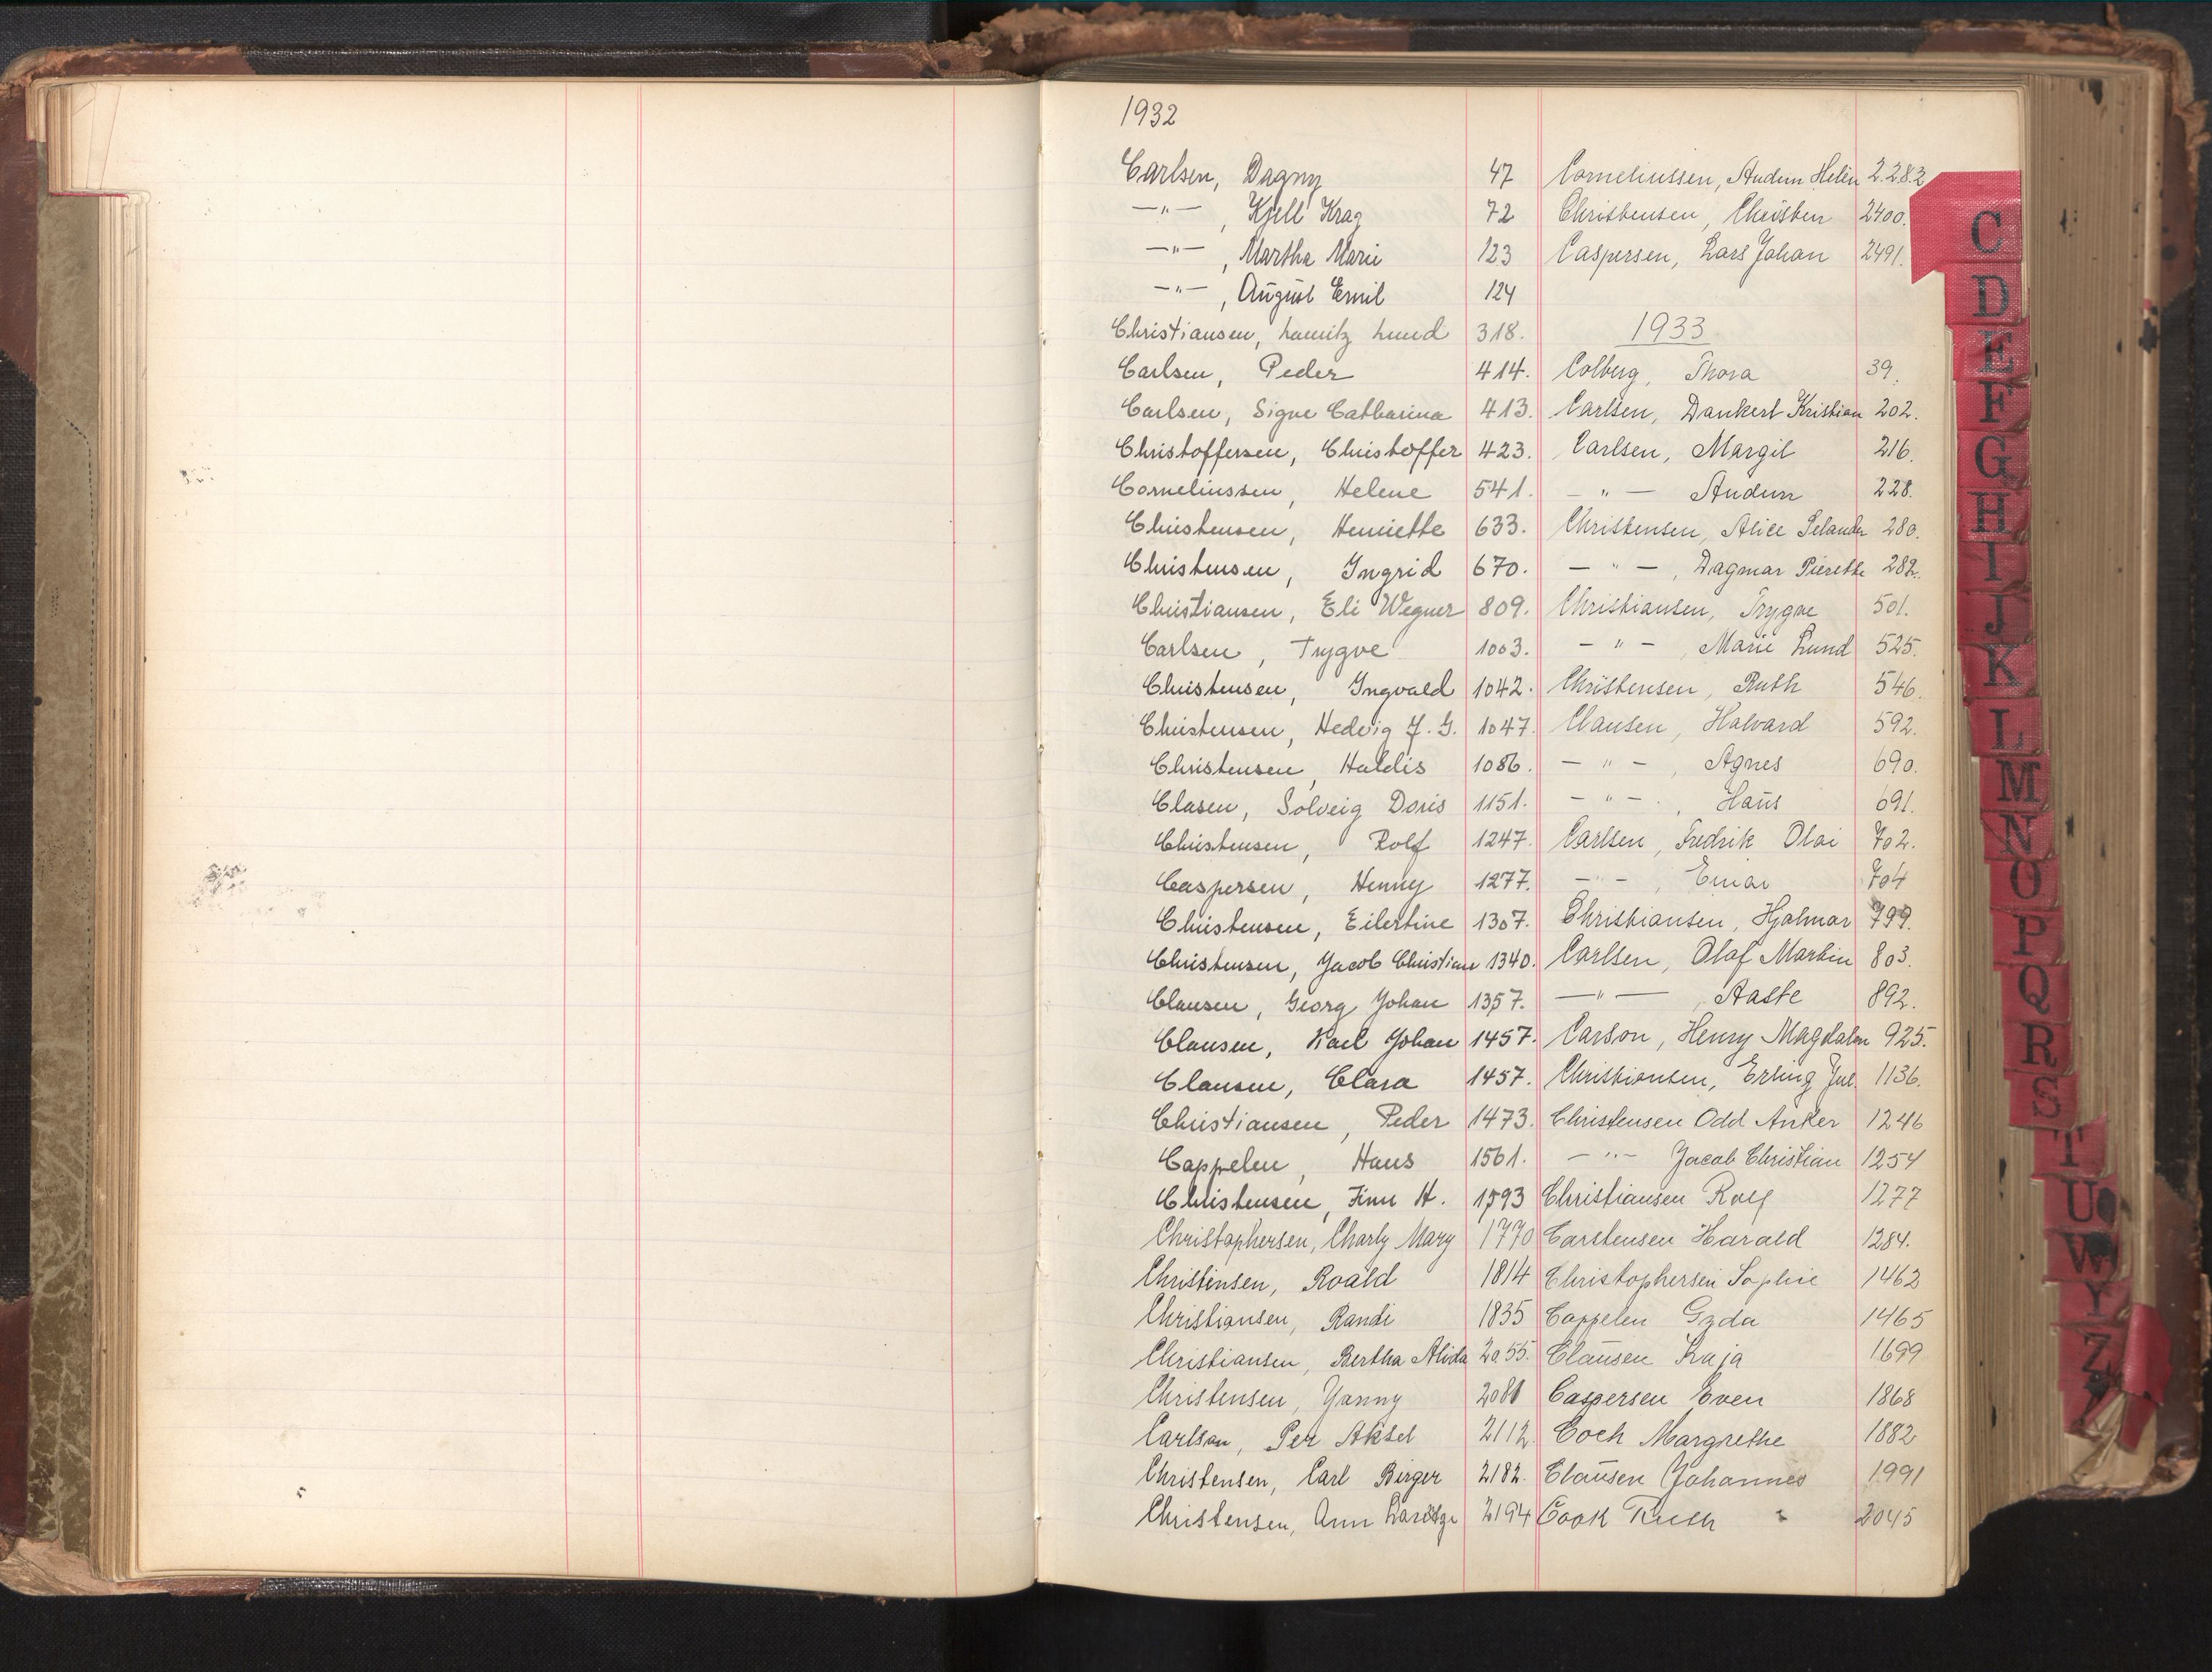 1932
Carlsen, Dagny 47
—"— , Kjell Krag 72
—"— , Martha Marie 123
—"— , August Emil 124
Christiansen, Lauritz Lund 318.
Carlsen, Peder 414.
Carlsen, Signe Catharina 413.
Christoffersen, Christoffer 423.
Corneliussen, Helene 541.
Christensen, Henriette 633.
Christensen, Ingrid 670.
Christiansen, Eli Wegner 809.
Carlsen, Trygve 1003.
Christensen, Ingvald 1042.
Christensen, Hedvig J. G. 1047.
Christensen, Haldis 1086.
Clasen, Solveig Doris 1151.
Christensen, Rolf 1247.
Caspersen, Henny 1277.
Christensen, Eilertine 1307.
Christensen, Jacob Christian 1340.
Clausen, Georg Johan 1357.
Clausen, Karl Johan 1457.
Clausen, Clara 1457.
Christiansen, Peder 1473.
Cappelen, Hans 1561.
Christensen, Finn H. 1593
Christophersen, Charly Mary 1770
Christensen, Roald 1814
Christiansen, Randi 1835
Christiansen, Bertha Alida 2055.
Christensen, Yanny 2081
Carlsen, Per Aksel 2112
Christensen, Carl Birger 2182.
Christensen, Ann 2194
Corneliussen, Audun Helén 2.282
Christensen, Christen 2400.
Caspersen, Lars Johan 2491.
1933
Colberg, Thora 39.
Carlsen, Dankert Kristian 202.
Carlsen, Margit 216.
—"— Audun 228.
Christensen, Alice Selander 280.
—"— , Dagmar Pierette 282.
Christiansen, Trygve 501.
—"— , Marie Lund 525.
Christensen, Ruth 546.
Clausen, Halvard 592.
—"— , Agnes 690.
—"— , Hans 691.
Carlsen, Fredrik Olai 702.
—"— , Einar 704
Christiansen, Hjalmar 799.
Carlsen, Olaf Martin 803.
—"— , Aaste 892.
Carson, Henry Magdalen 925.
Christiansen, Erling Jul. 1136.
Christensen Odd Anker 1246
—"— Jacob Christian 1254
Christiansen Rolf 1277
Carstensen Harald 1284.
Christophersen Sophie 1462
Cappelen Gyda 1465
Clausen Kaja 1699
Caspersen Even 1868
Coch Margrethe 1882
Clausen Johannes 1991
Cook Ruth 2045
C
D
E
F
G
H
I
J
K
L
M
N
O
P
Q
R
S
T
U
W
Y
Z